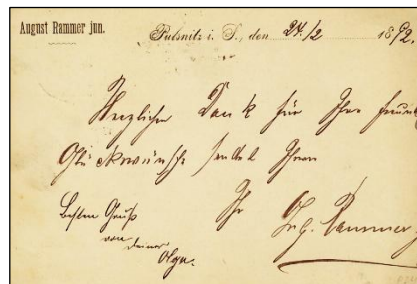 August Rammer jun.
Pulsnitz i. S., den 24./2 1892.
Herzlichen Dank für Ihre freund
Glückwünsche sendet Ihnen
Besten Gruß Ihr
von Deiner Aug. Rammer
Olga.